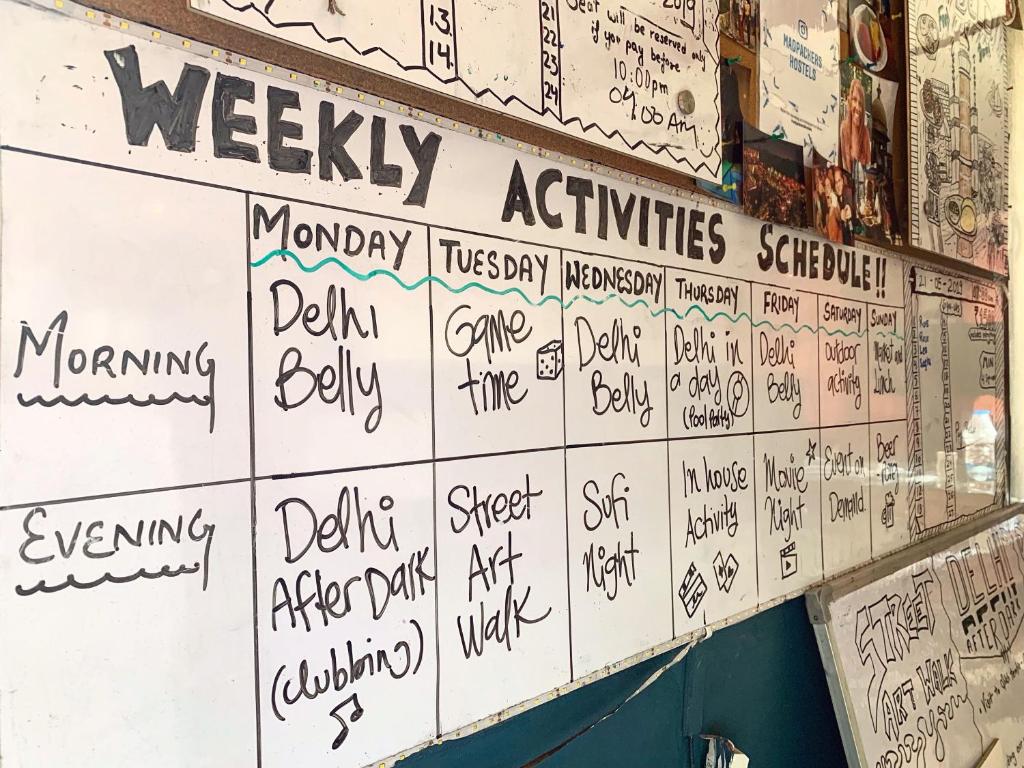 13.
14.
21
22
23
24
2019
Seat will be reserved only
if you pay before
10:00pm
MADPACKERS
HOSTELS
WEEKLY ACTIVITIES SCHEDULE!!
MONDAY TUESDAY WEDNESDAY THURSDAY FRIDAY SATURDAY SUNDAY
MORNING
Delhi
Belly
Game
time
Delhi
Belly
Delhi in
a day
(Pool Party)
Delhi
Belly
Outdoor
activity
Market and
Lunch
EVENING
Delhi
After Dark
(clubbing)
Street
Art
Walk
Sufi
Night
In house
Activity
Movie
Night
Event on
Demand
Beer
Pong
21-05-2019
STREET
ART WALK
DELHI
AFTER DARK